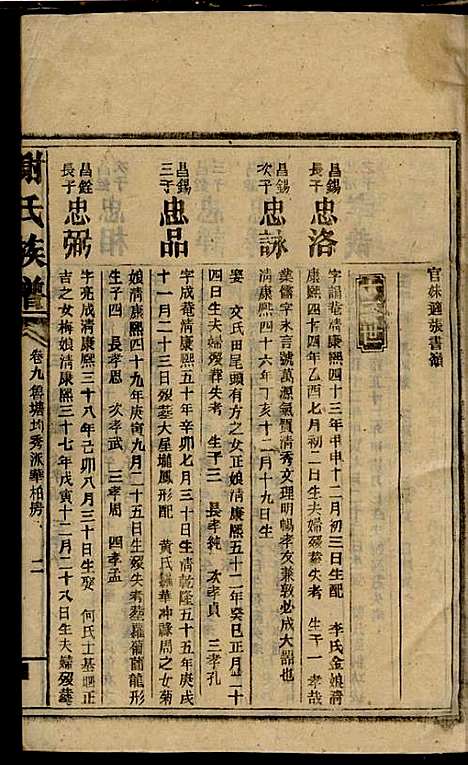 官妹適張書嶺
昌錫
長子
忠洛
字韻菴清康熙四十三年甲申十二月初三日生配 李氏金娘清
康熙四十四年乙酉七月初二日生夫婦歿葬失考 生子一 孝哉
昌錫
次子
忠詠
業儒字永言號萬源氣質清秀文理明暢孝友兼敦必成大器也
清康熙四十六年丁亥十二月十九日生
娶 文氏田尾頭有方之女正娘清康熙五十二年癸巳正月二十
四日生夫婦歿葬失考 生子三 長孝純 次孝貞 三孝孔
昌錫
三子
忠品
字成菴清康熙五十年辛卯七月三十日生清乾隆五十五年庚戌
十一月二十三日歿葬大屋壠鳳形配 黃氏羅華冲聲周之女菊
娘清康熙四十九年庚寅九月二十五日生歿失考葬羅葡園龍形
生子四 長孝恩 次孝武 三孝周 四孝孟
昌銓
長子
忠弼
字亮成清康熙三十八年己卯八月三十日生娶 何氏士基
吉之女梅娘清康熙三十七年戊寅十二月二十八日生夫婦歿葬
謝氏族譜
卷九魯塘均秀派華柏房
二